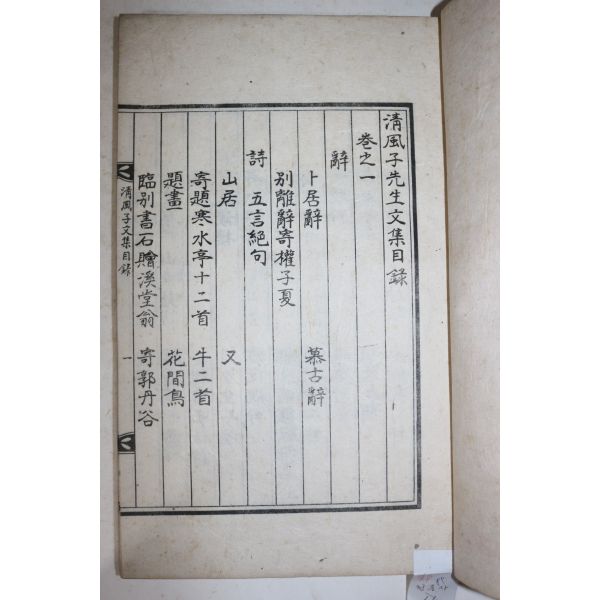 清風子先生文集目錄
卷之一
辭
卜居辭 慕古辭
別離辭寄權子夏
詩 五言絕句
山居 又
寄題寒水亭十二首 牛二首
題畫 花間鳥
臨別書石贈溪堂翁 寄郭丹谷
清風子文集目錄 一